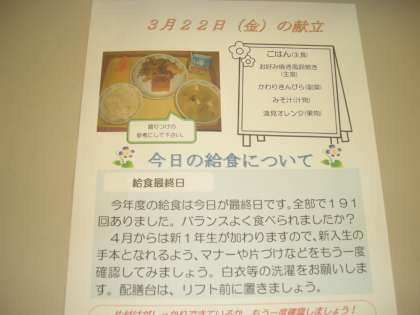 3月22日（金）の献立
ごはん(主食)
お好み焼き風卵焼き
(主菜)
かわりきんぴら(副菜)
みそ汁(汁物)
清見オレンジ(果物)
盛りつけの
参考にして下さい。
今日の給食について
給食最終日
今年度の給食は今日が最終日です。全部で191
回ありました。バランスよく食べられましたか？
4月からは新1年生が加わりますので、新入生の
手本となれるよう、マナーや片づけなどをもう一度
確認してみましょう。白衣等の洗濯をお願いしま
す。配膳台は、リフト前に置きましょう。
片付けがしっかりできているか、もう一度確認しましょう！